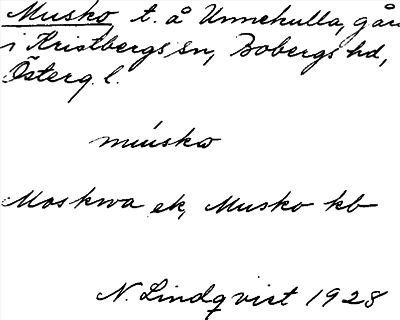 Musko, t. å Unnekulla, går
i Kristbergs sn, Bobergs hd,
Österg. l.
Moskwa ek, Musko kb
N. Lindqvist 1928